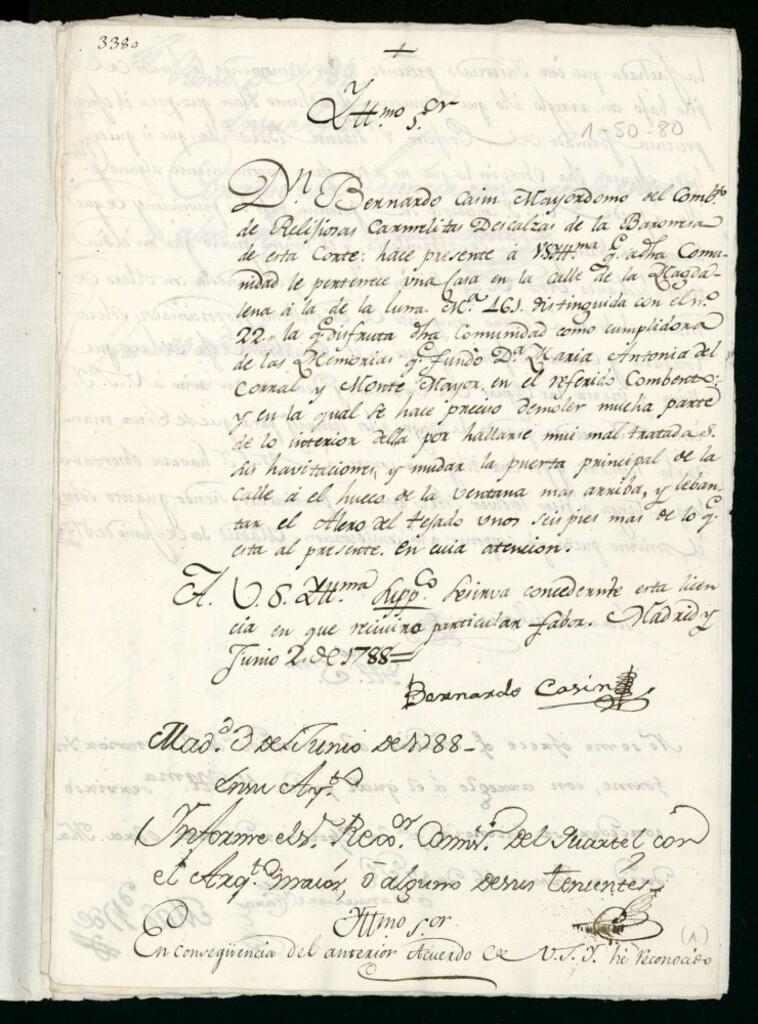 3380
+
Yttmo sor
1-50-80
Dn Bernardo Casin Mayordomo del Combto
de Relijiosas Carmelitas Descalzas de la Baronesa
de esta Corte: hace presente á VSYttma q. a dha Comu-
nidad le pertenece vna Casa en la calle de la Magda-
lena á la de la luna. Mna 461. distinguida con el no.
22. la q. disfruta dha Comunidad como cumplidora
de las Memorias q. fundó Da. Maria Antonia del
Corral y Monte Mayor, en el referido Combento:
y en la qual se hace preciso demoler mucha parte
de lo interior della por hallarse mui mal tratadas.
sus havitaciones, y mudar la puerta principal de la
calle á el hueco de la ventana mas arriba, y leban-
tar el Alero del tejado vnos seis pies mas de lo q.
esta al presente. en cuia atencion.
A. V. S. Yttma. Suppco. se sirva concederme esta licen
cia en que recivira particular fabor. Madrid y
Junio 2. de 1788=
Bernardo Casin
Madd. 3 de Junio de 1788-
En su Aytto
Informe el sr. Rexor. Comisr. del Quartel con
el Arqto. maior, ó alguno de sus tenientes
Yttmo sor
(1)
En conseqüencia del anterior Acuerdo de V.S.Y. hé reconocido